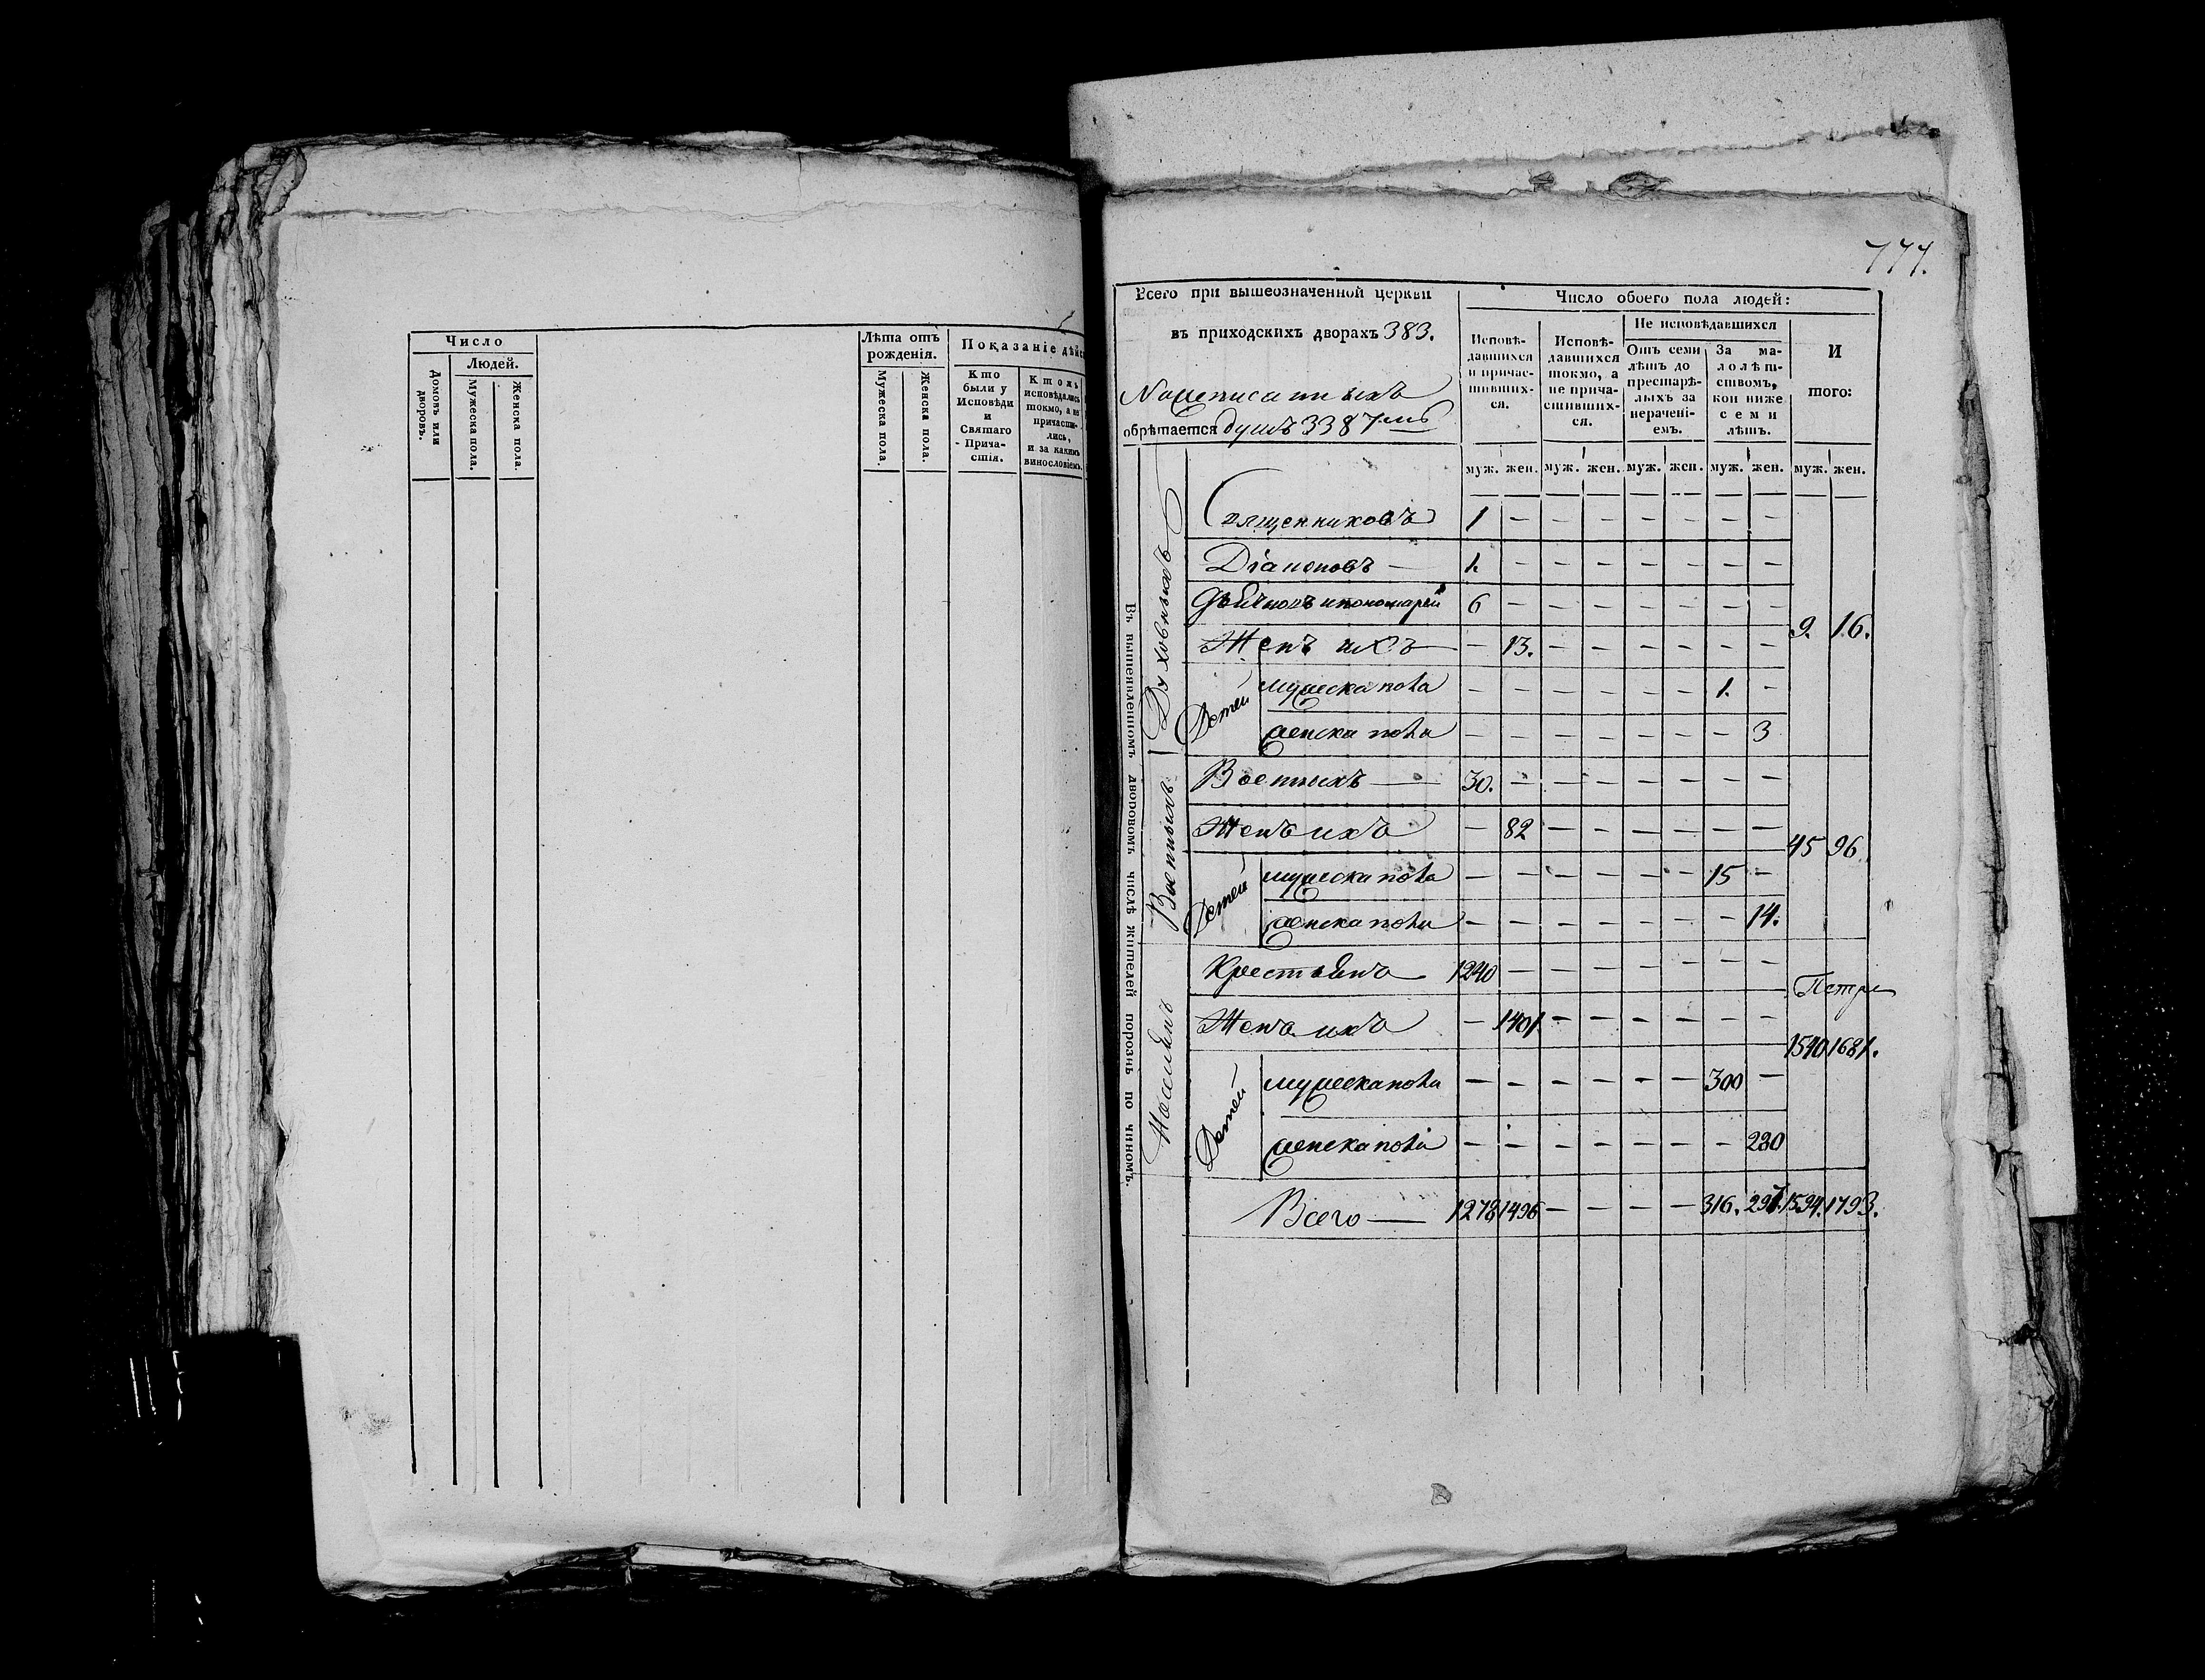 Число
Людей.
Домовъ или дворовъ.
Мужеска пола.
Женска пола.
Лѣта отъ рожденія.
Мужеска пола.
Женска пола.
Показаніе дѣйс
Кто
были у
Исповѣди
и
Святаго
Прича-
стія.
Ктожъ
исповѣдались
токмо, а не
причасти-
лись,
и за какимъ
винословіемъ.
777.
Всего при вышеозначенной церкви
въ приходскихъ дворахъ 383.
обрѣтается душъ 3387мь
Число обоего пола людей:
Исповѣ-
давшихся
и причас-
тивших-
ся.
Исповѣ-
давшихся
токмо, а
не прича-
стивших-
ся.
Не исповѣдавшихся
Отъ семи
лѣтъ до
престарѣ-
лыхъ за
нерачені-
емъ.
За ма-
лолѣт-
ствомъ,
кои ниже
семи
лѣтъ.
И
того:
муж. жен. муж. жен. муж. жен. муж. жен. муж. жен.
Въ вышеявленномъ дворовомъ числѣ жителей порознь по чиномъ.
Духовныхъ
Священниковъ 1 — — — — — — —
Діаконовъ — 1. — — — — — — —
Дьячковъ и пономарей 6 — — — — — — —
Женъ ихъ — 13. — — — — — —
9. 16.
Детей
мужеска пола — — — — — — 1. —
женска пола — — — — — — — 3
Военныхъ
Военныхъ — 30. — — — — — — —
Женъ ихъ — 82 — — — — — —
45 96.
Детей
мужеска пола — — — — — — 15 —
женска пола — — — — — — — 14.
Поселянъ
Крестьянъ 1240 — — — — — — —
Петръ
Женъ ихъ — 1401 — — — — — —
1540 1681.
Детей
мужеска пола — — — — — — 300 —
женска пола — — — — — — — 280
Всего — 1278 1496 — — — — 316. 297. 1594. 1793.